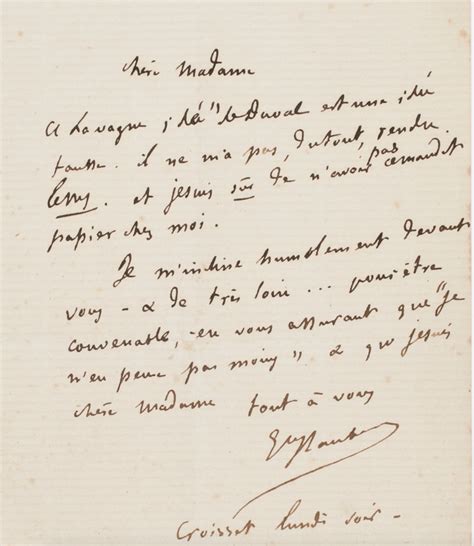 chère Madame
idée de Duval est une idée
fausse. il ne m'a pas, du tout, rendu
et je suis sûr de n'avoir pas
papier chez moi.
Je m'incline humblement devant
vous - & de très loin ... pour être
convenable, - en vous assurant que "Je
n'en pense pas moins" & que je suis
chère Madame tout à vous
Gve Flaubert
Croisset lundi soir -